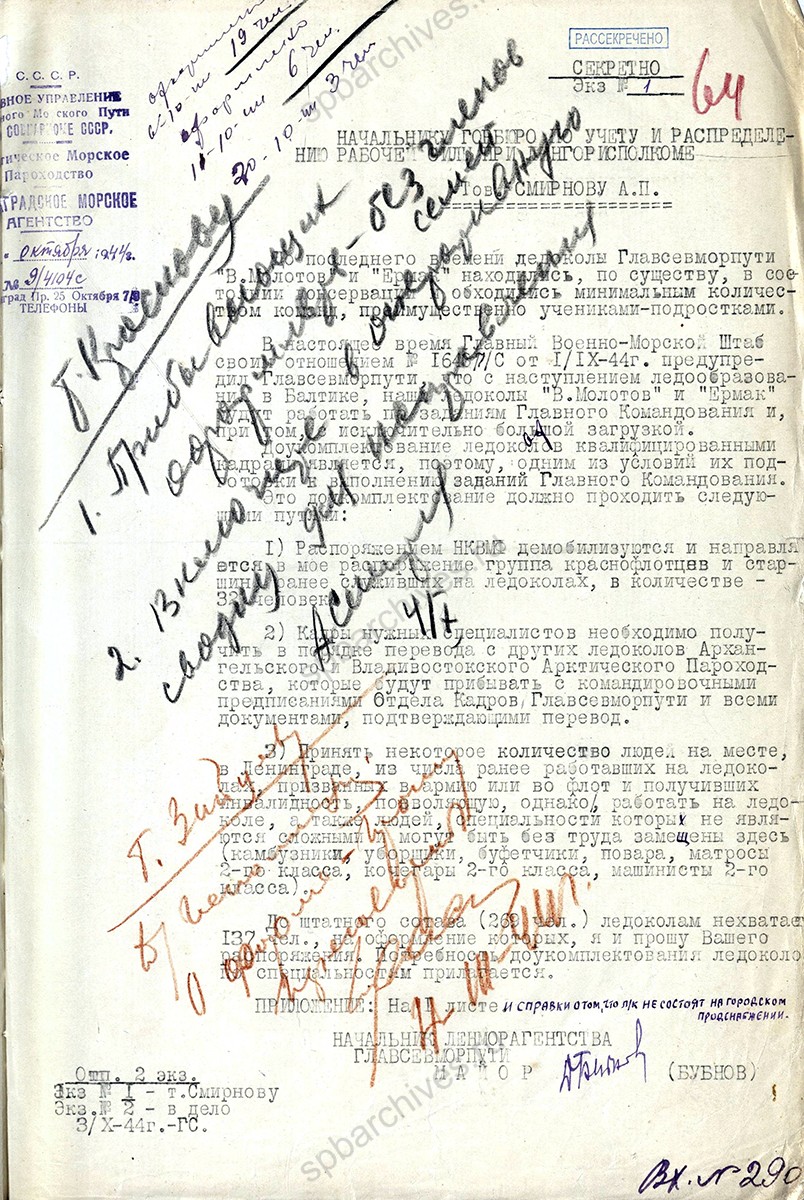 РАССЕКРЕЧЕНО
СЕКРЕТНО
Экз № 1
64
С. С. С. Р.
ВНОЕ УПРАВЛЕНИЕ
ного Мо ского Пути
СОВНАРКОМЕ СССР.
тическое Морское
Пароходство
ГРАДСКОЕ МОРСКОЕ
АГЕНТСТВО
" октября 1944г.
№ 9/4104с
град Пр. 25 Октября 7/9
ТЕЛЕФОНЫ
оформлено
6/10-ти 19 чел.
оформлено
11-10-ти 6 чел.
20-10-ти 3 чел
НАЧАЛЬНИКУ ГОРБЮРО ПО УЧЕТУ И РАСПРЕДЕЛЕ-
НИЮ РАБОЧЕЙ СИЛЫ ПРИ ЛЕНГОРИСПОЛКОМЕ
Тов. СМИРНОВУ А.П.
До последнего времени ледоколы Главсевморпути
"В.Молотов" и "Ермак" находились, по существу, в сос-
тоянии консервации и обходились минимальным количес-
твом команд, преимущественно учениками-подростками.
В настоящее время Главный Военно-Морской Штаб
своим отношением № /С от I/IX-44г. предупре-
дил Главсевморпути, что с наступлением ледообразова-
ния в Балтике, наши ледоколы "В.Молотов" и "Ермак"
будут работать по заданиям Главного Командования и,
при том, с исключительно большой загрузкой.
Доукомплектование ледоколов квалифицированными
кадрами является, поэтому, одним из условий их под-
готовки к выполнению заданий Главного Командования.
Это докомплектование должно проходить следую-
щими путями:
I) Распоряжением НКВМФ демобилизуются и направля
ется в мое распоряжение группа краснофлотцев и стар-
шин, ранее служивших на ледоколах, в количестве -
человек.
2) Кадры нужных специалистов необходимо полу-
чить в порядке перевода с других ледоколов Архан-
гельского и Владивостокского Арктического Пароход-
ства, которые будут прибывать с командировочными
предписаниями Отдела Кадров Главсевморпути и всеми
документами, подтверждающими перевод.
3) Принять некоторое количество людей на месте,
в Ленинграде, из числа ранее работавших на ледоко-
лах, призванных в армию или во флот и получивших
инвалидность, позволяющую, однако, работать на ледо-
коле, а также людей, специальности которых не явля-
ются сложными и могут быть без труда замещены здесь
(камбузники, уборщики, буфетчики, повара, матросы
2-го класса, кочегары 2-го класса, машинисты 2-го
класса).
До штатного состава (269 чел.) ледоколам нехватает
137 чел., на оформление которых, я и прошу Вашего
распоряжения. Потребность доукомплектования ледоколов
по специальностям прилагается.
ПРИЛОЖЕНИЕ: На I листе и справки о том, что л/к не состоят на городском
продснабжении.
НАЧАЛЬНИК ЛЕНМОРАГЕНТСТВА
ГЛАВСЕВМОРПУТИ
МАЙОР (БУБНОВ)
Отп. 2 экз.
Экз № I - т.Смирнову
Экз.№ 2 - в дело
3/X-44г.-ГС.
Т. Краснову
1. Прибывающих
оформляйте - без членов
семей
2. Включите в
сводку для направления
4/X
Вх. № 290
spbarchives.ru